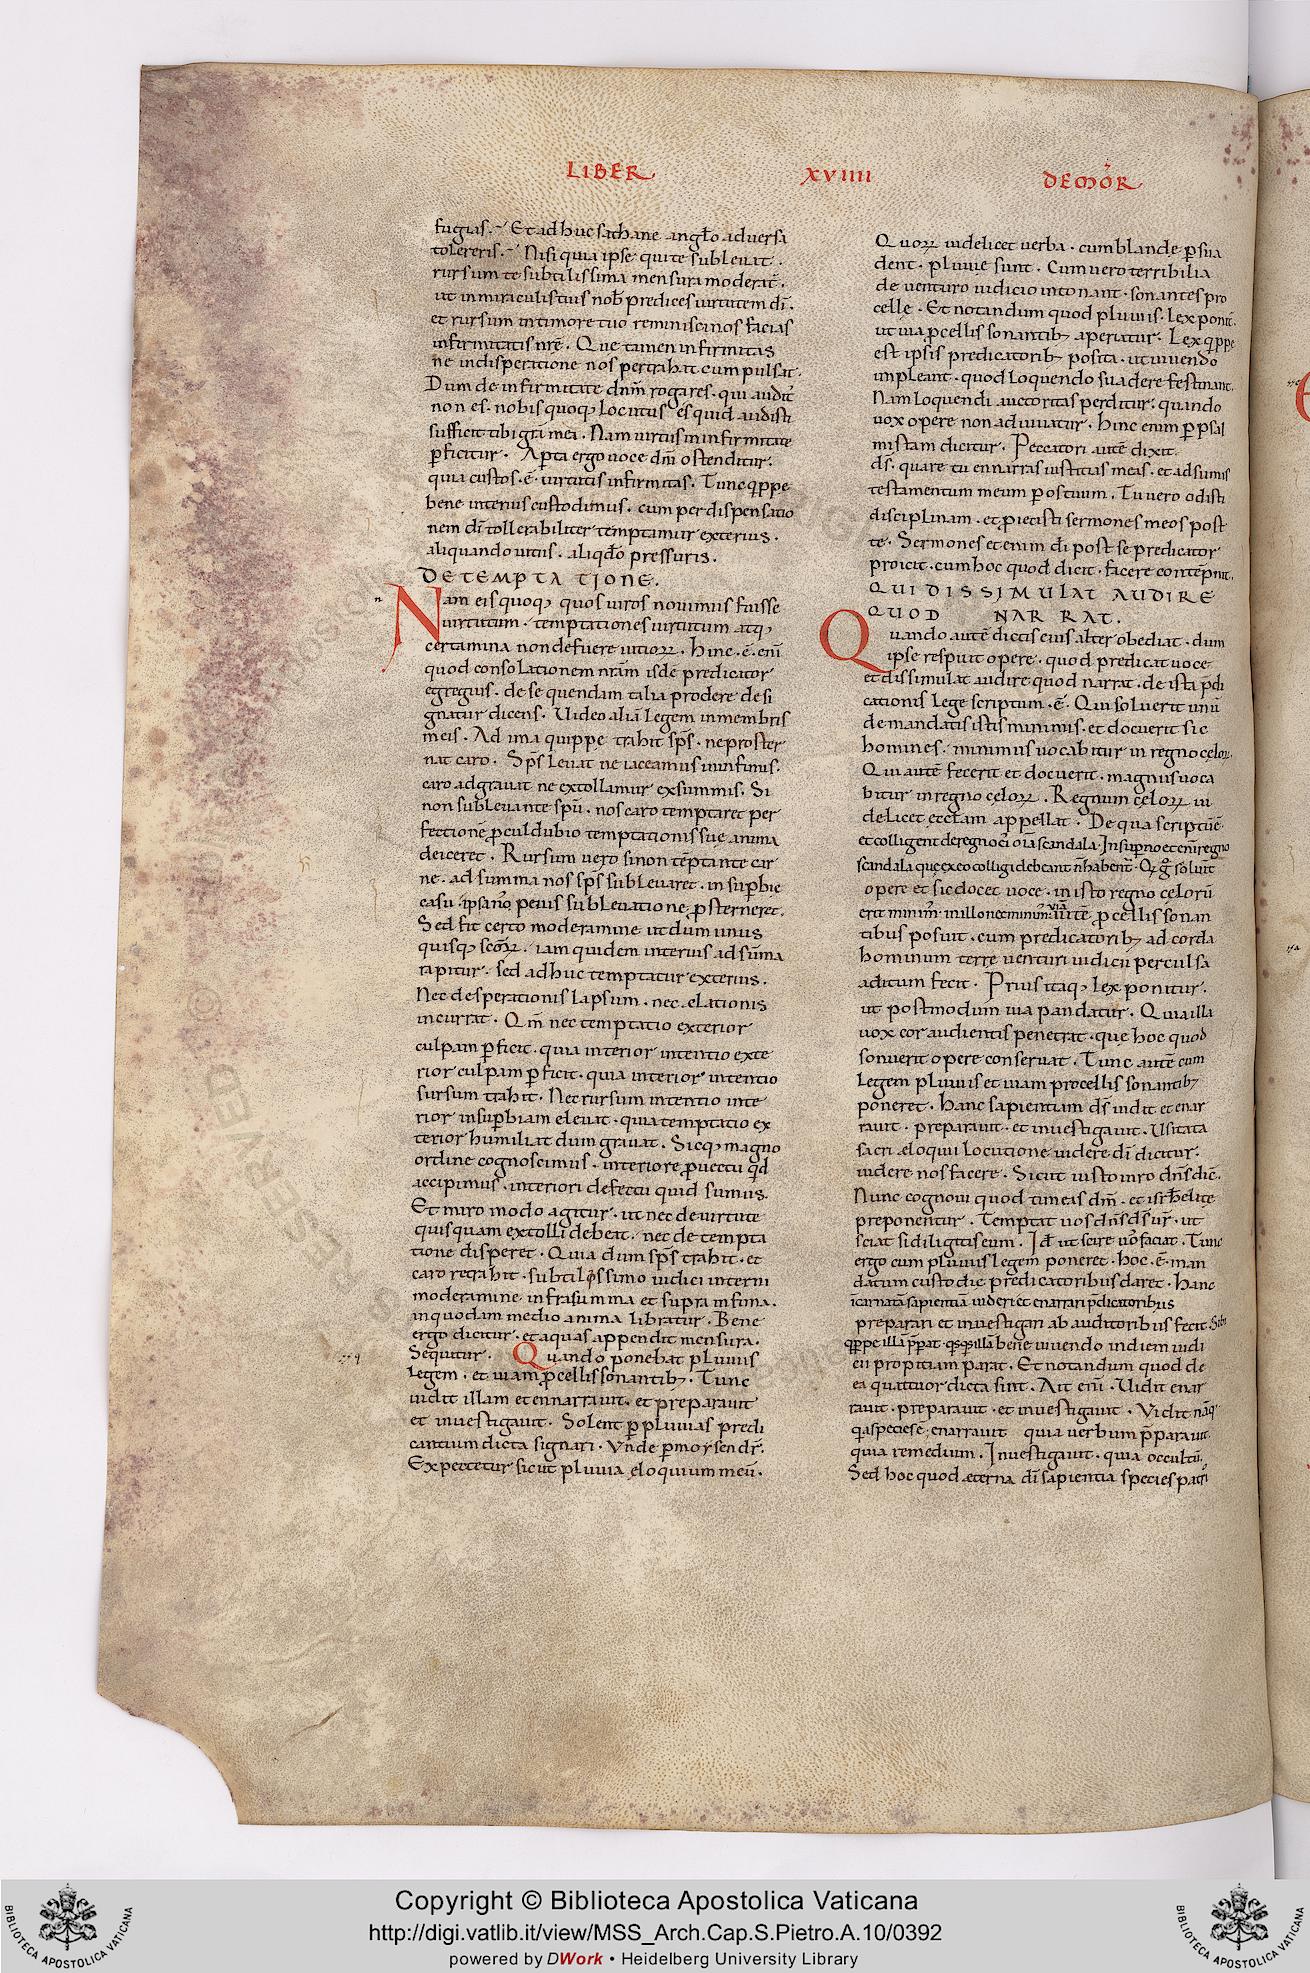 LIBER XVIIII DEMOR̄
fugias. Et adhuc sathane anglo adversa
tolereris. Nisi quia ipse qui te sublevat.
rursum te subtilissima mensura moderat̄.
ut in miraculis tuis nob̄ predices virtutem dī.
et rursum in timore tuo reminisci nos facias
infirmitatis nr̄e. Que tamen infirmitas
ne in disperatione nos pertrahat cum pulsat.
Dum de infirmitate dn̄m rogares. qui audit̄
non es. nobis quoq; locutus es quid audisti
sufficit tibi gr̄a mea. Nam virtus in infirmitate
p̄ficitur. Ap̄ta ergo voce dn̄i ostenditur.
quia custos .ē. virtutis infirmitas. Tunc q̄ppe
bene interius custodimus. cum per dispensatio
nem dī tollerabiliter temptamur exterius.
aliquando vitiis. aliqdo pressuris.
DE TEMPTATIONE.
Nam eis quoq; quos viros novimus fuisse
virtutum. temptationes virtutum atq;
certamina non defuere vitioꝝ. Hinc .ē. enī
quod consolationem nr̄am isdē predicator
egregius. de se quendam talia prodere desi
gnatur dicens. Video aliā legem in membris
meis. Ad ima quippe trahit sps̄. ne proster
nat caro. Sps̄ levat ne iaceamus in infimis.
caro adgravat ne extollamur ex summis. Si
non sublevante spū. nos caro temptaret per
fectionē proculdubio temptationis sue anima
deiceret. Rursum vero si non tēptante car
ne. ad summa nos sps̄ sublevaret. in sup̄bie
casu. ipsa peius sublevatione p̄sterneret.
Sed fit certo moderamine ut dum unus
quisq; sc̄oꝝ. iam quidem interius ad sūma
rapitur. sed adhuc temptatur exterius.
Nec desperationis lapsum. nec elationis
incurrat. Qm̄ nec temptatio exterior
culpam p̄ficit. quia interior intentio exte
rior culpam p̄ficit. quia interior intentio
sursum trahit. Nec rursum intentio inte
rior in sup̄biam elevat. quia temptatio ex
terior humiliat dum gravat. Sicq; magno
ordine cognoscimus. interiore p̄vectu qd
accipimus. interiori defectu quid sumus.
Et miro modo agitur. ut nec de virtute
quisquam extolli debeat. nec de tempta
tione disperet. Quia dum sps̄ trahit. et
caro retrahit. subtilissimo iudici interni
moderamine infra summa et supra infima.
in quodam medio anima libratur. Bene
ergo dicitur. et aquas appendit mensura.
Sequitur. Quando ponebat pluviis
legem. et viam procellis sonantib;. Tunc
vidit illam et ennarravit. et preparavit
et investigavit. Solent p̄ pluvias predi
cantium dicta signari. Unde p̄ moysen dr̄.
Expectetur sicut pluvia eloquium meū.
Quoꝝ videlicet verba. cum blande p̄sua
dent. pluvie sunt. Cum vero terribilia
de venturo iudicio intonant. sonantes pro
celle. Et notandum quod pluviis. lex ponit̄.
ut via p̄cellis sonantib; aperiatur. Lex q̄ppe
est ipsis predicatorib; posita. ut vivendo
impleant. quod loquendo suadere festinant.
Nam loquendi auctoritas perditur. quando
vox opere non adiuvatur. Hinc enim p̄ psal
mistam dicitur. Peccatori autē dixit
ds̄. quare tu ennarras iustitias meas. et adsumis
testamentum meum p̄ os tuum. Tu vero odisti
disciplinam. et proiecisti sermones meos post
te. Sermones etenim dī post se predicator
proicit. cum hoc quod dicit. facere contēpnit.
QUI DISSIMULAT AUDIRE
QUOD NARRAT.
Quando autē dictis eius alter obediat. dum
ipse respuit opere. quod predicat voce
et dissimulat audire quod narrat. de ista p̄di
cationis lege scriptum .ē. Qui solverit unū
de mandatis istis minimis. et docuerit sic
homines. minimus vocabitur in regno celoꝝ.
Qui autē fecerit et docuerit. magnus voca
bitur in regno celoꝝ. Regnum celoꝝ vi
delicet eccl̄am appellat. De qua scriptū ē.
et colligent de regno ei oīa scandala. In sup̄no etenī regno
scandala que ex eo colligi debeant n̄ habent̄. Q; g̊ solvit
opere et sic docet voce. in isto regno celorū
erit minim̄. in illo nec minim̄. viā autē p̄cellis sonan
tibus posuit. cum predicatorib; ad corda
hominum terre venturi iudicii perculsa
aditum fecit. Prius itaq; lex ponitur.
ut postmodum via pandatur. Quia illa
vox cor audientis penetrat. que hoc quod
sonuerit opere conservat. Tunc autē cum
legem pluviis et viam procellis sonantib;
poneret. Hanc sapientiam ds̄ vidit et enar
ravit. preparavit. et investigavit. Usitata
sacri eloquii locutione videre dī dicitur.
videre nos facere. Sicut iusto viro dn̄s dic̄.
Nunc cognovi quod timeas dn̄m. et isrhelite
preponentur. Temptat vos dn̄s ds̄ vr̄. ut
sciat si diligitis eum. Id̄ ut scire vō faciat. Tunc
ergo cum pluviis legem poneret. hoc .ē. man
datum custodie predicatoribus daret. Hanc
īcarnatā sapientiā videri et enarrari p̄dicatoribus
preparari et investigari ab auditoribus fecit. Sibi
q̄ppe illā p̄parat. qsqs illā bene vivendo in diem iudi
cii propitiam parat. Et notandum quod de
ea quattuor dicta sint. Ait enī. Vidit enar
ravit. preparavit. et investigavit. Vidit nāq;
q̄a species ē. enarravit quia verbum p̄paravit.
quia remedium. Investigavit. quia occultū.
Sed hoc quod eterna dī sapientia species patri
Copyright © Biblioteca Apostolica Vaticana
http://digi.vatlib.it/view/MSS_Arch.Cap.S.Pietro.A.10/0392
powered by DWork • Heidelberg University Library
BIBLIOTECA APOSTOLICA VATICANA
BIBLIOTECA APOSTOLICA VATICANA